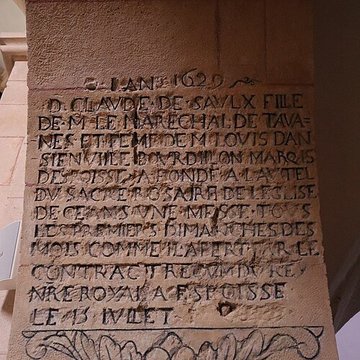 L AN 1629
D CLAUDE DE SAULX FILLE
DE M LE MARECHAL DE TAVA
NES ET FEME DE M LOUIS DAN
SIENVILLE BOURDILLON MARQUIS
DESPOISSE A FONDÉ A LAUTEL
DU SACRE ROSAIRE DE LEGLISE
DE CEANS UNE MESSE TOUS
LES PREMIERS DIMANCHES DES
MOIS COMME IL APERT PAR LE
CONTRACT RECU M DU REY
NRE ROYAL A ESPOISSE
LE 15 IUILLET